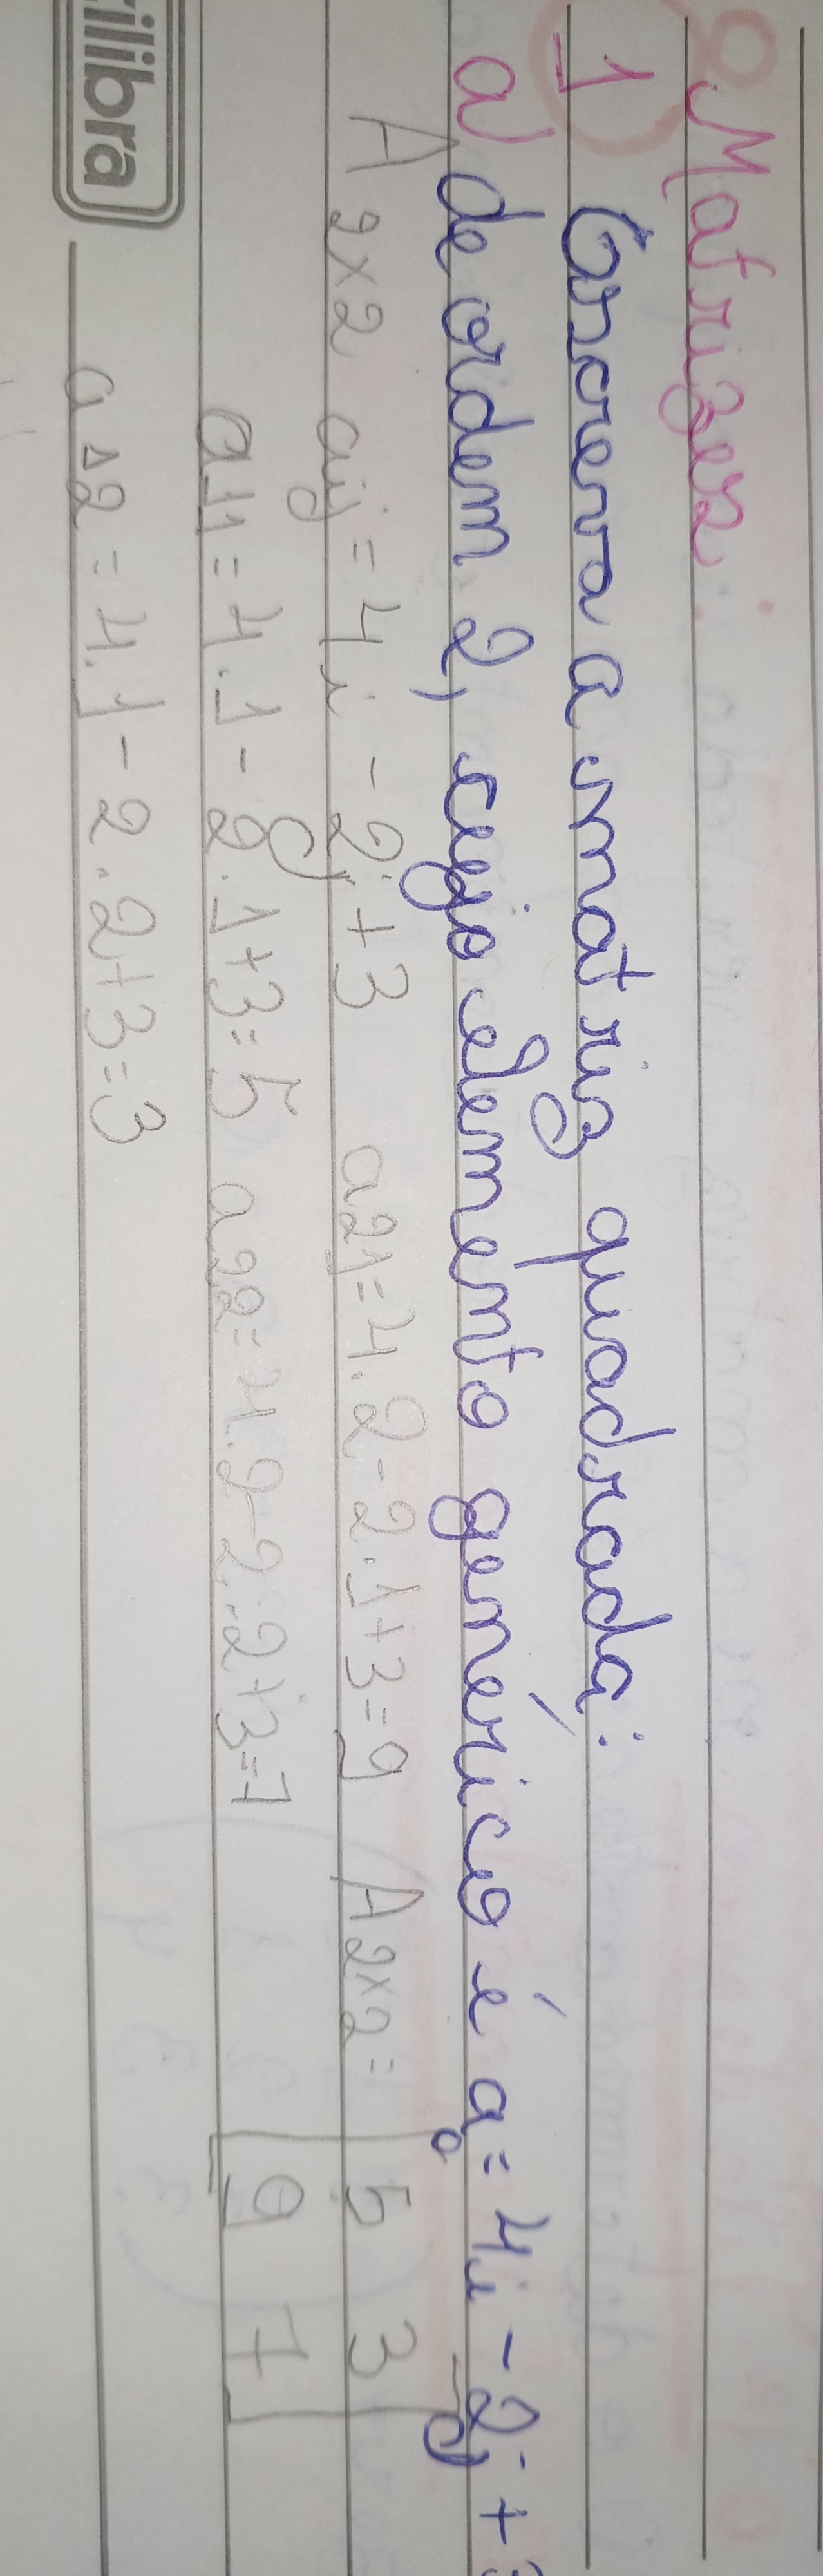 Matrizes:
1 Escreva a matriz quadrada:
a) de ordem 2, cujo elemento genérico é a = 4i - 2j + 3
A 2x2 aij = 4i - 2j + 3 a21 = 4.2 - 2.1 + 3 = 9 A 2x2 = [5 3
a11 = 4.1 - 2.1 + 3 = 5 a22 = 4.2 - 2.2 + 3 = 7 9 7]
a12 = 4.1 - 2.2 + 3 = 3
ilibra